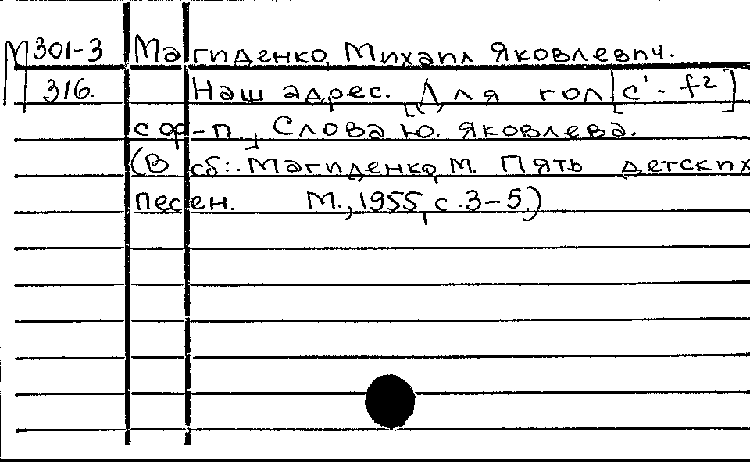 М 301-3 Магиденко, Михаил Яковлевич.
316. Наш адрес. [Для гол[c¹-f²]
с ф-п.], Слова Ю. Яковлева.
(В сб.: Магиденко, М. Пять детских
песен. М., 1955, с. 3-5.)